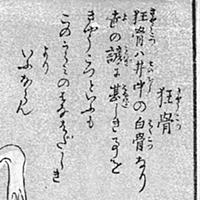 狂骨
きやうこつ
狂骨ハ井中の白骨なり
世の諺に甚しき事を
きやうこつといふも
このうらみのはなはだしき
より
いふならん